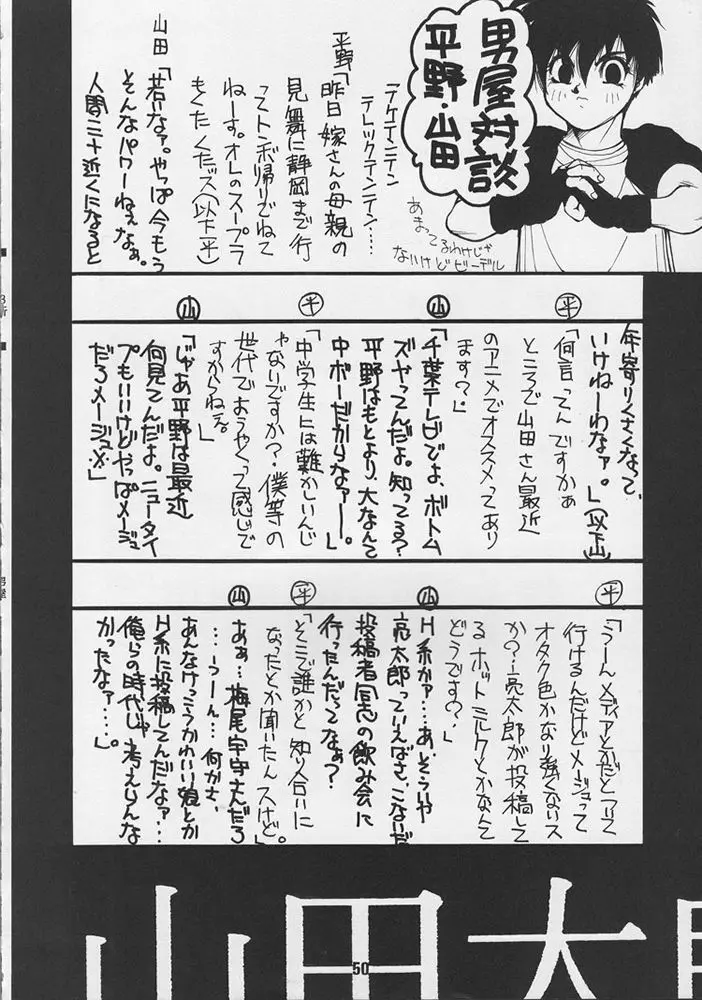 男屋対談
平野・山田
テケテンテン
テレックテンテン…
平野「昨日嫁さんの母親の
見舞に静岡まで行
ってトンボ帰りでねて
ねーす。オレのスープラ
もくたくだっス(以下平)
山田「若いなァ。やっぱ今もう
そんなパワーねぇなぁ。
人間三十近くになると
あまってるわけじゃ
ないけどビーデル
年寄りくさくなって、
いけねーわなァ。」(以下山)
平「何言ってんですかぁ
ところで山田さん最近
のアニメでオススメってあり
ます?」
山「千葉テレビでよ、ボトム
ズやってんだよ。知ってる?
平野はもとより、大なんて
中ボーだからなァー。」
平「中学生には難かしいんじ
ゃないですか?僕等の
世代でようやくって感じで
すからねえ。」
山「じゃあ平野は最近
何見てんだよ。ニュータイ
プもいいけどやっぱメージュ
だろメージュ。」
平「うーんメディアとかだとついて
行けるんだけどメージュって
オタク色かなり強くないス
か?…亮太郎が投稿して
るホットミルクとかなんて
どうです?」
山 H系かァ…。あ、そういや
亮太郎っていえばさ、こないだ
投稿者同志の飲み会に
行ったんだってなぁ?
平「そこで誰かと知り合いに
なったとか聞いたんスけど。」
山 あぁ…梅尾宇守さんだろ
…うーん…何かさ、
あんなけっこうかわいい娘とか
H系に投稿してんだなァ…
俺らの時代じゃ考えらんな
かったなァ…。」
山田太
50